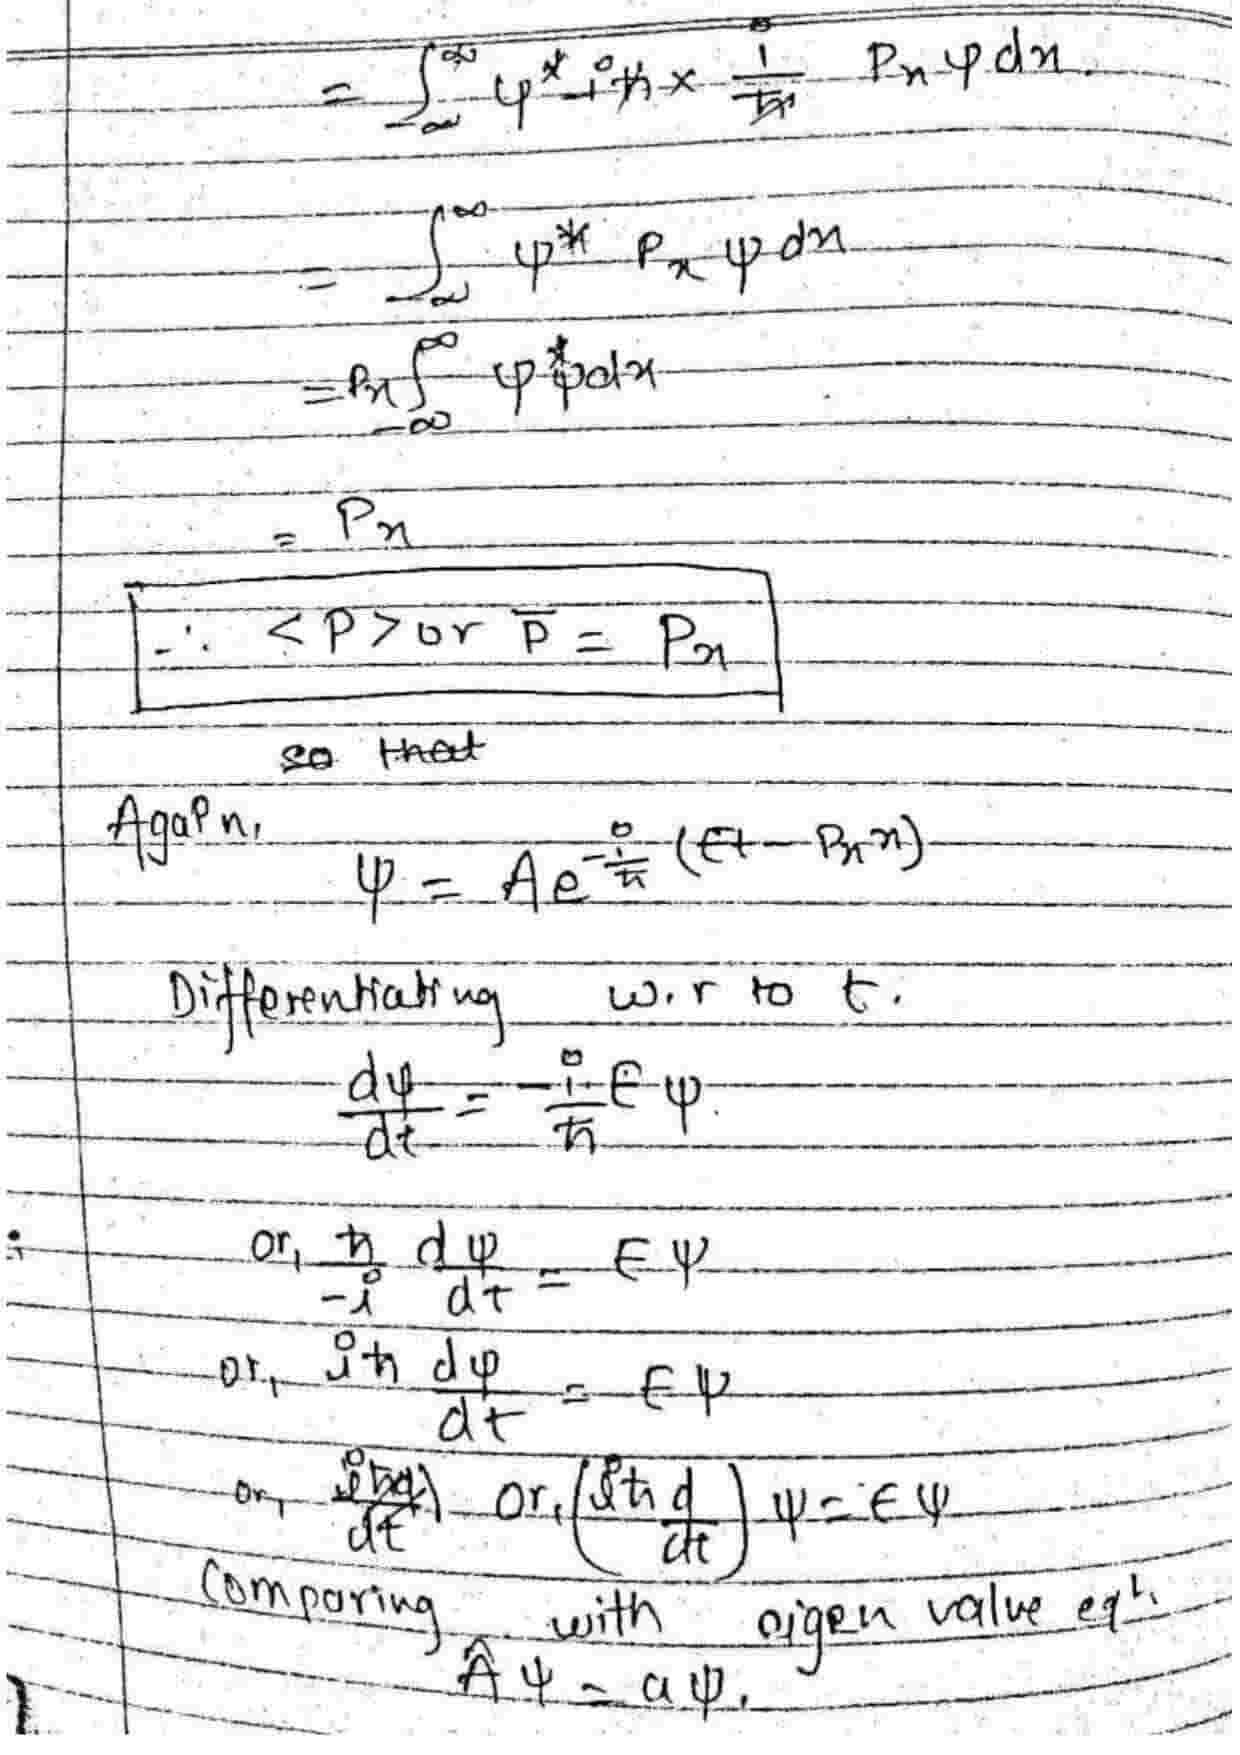 = ∫_{-∞}^{∞} ψ* -iħ × i/ħ Pₓ ψ dx.
= ∫_{-∞}^{∞} ψ* Pₓ ψ dx
= Pₓ ∫_{-∞}^{∞} ψ*ψ dx
= Pₓ
∴ <P> or P̄ = Pₓ
so that
Again,
ψ = A e^{-i/ħ (Et - Pₓx)}
Differentiating w.r to t.
dψ/dt = -i/ħ E ψ.
or, ħ/-i dψ/dt = E ψ
or, iħ dψ/dt = E ψ
or, iħd/dt) or, (iħ d/dt) ψ = E ψ
Comparing with eigen value eqⁿ.
Âψ = aψ.